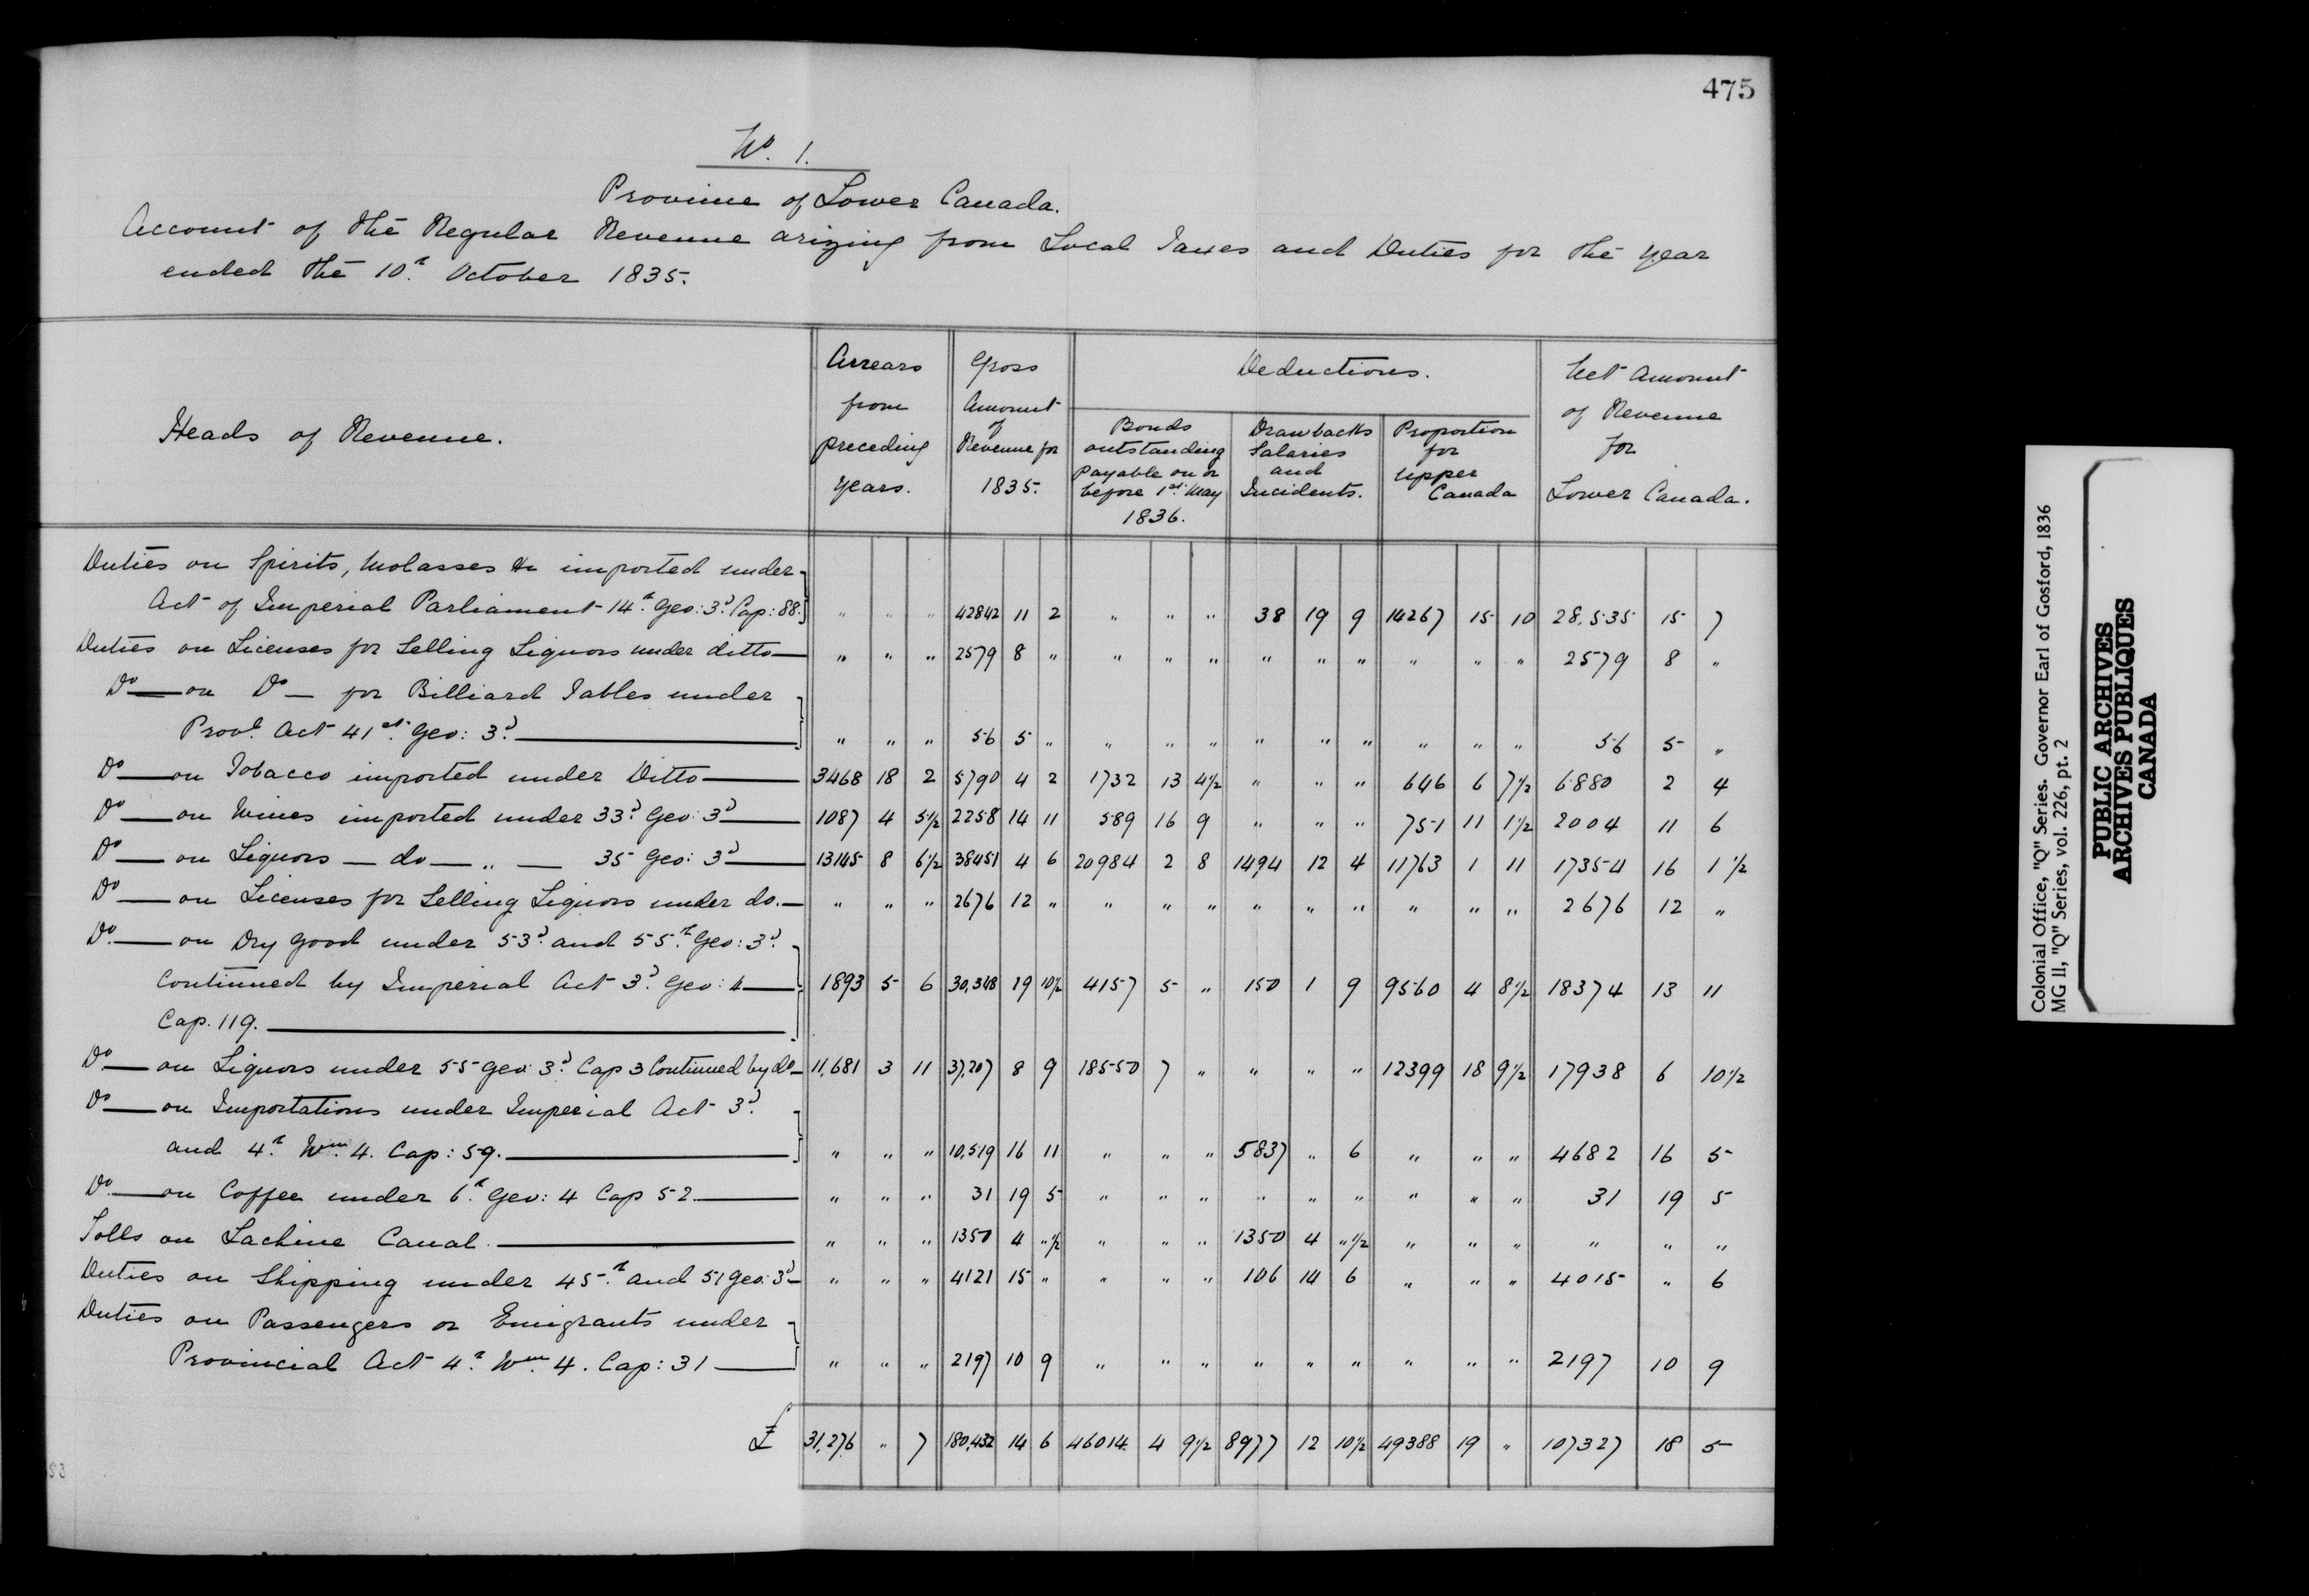 475
No. 1.
Province of Lower Canada.
Account of the Regular Revenue arizing from Local Taxes and Duties for the year
ended the 10th October 1835.
Heads of Revenue.
Arrears from preceding years.
Gross Amount of Revenue for 1835.
Deductions.
Bonds outstanding payable on or before 1st May 1836.
Drawbacks Salaries and Incidents.
Proportion for Upper Canada
Net Amount of Revenue for Lower Canada.
Duties on Spirits, Molasses &c imported under
Act of Imperial Parliament 14th Geo: 3d Cap: 88. " " " 42842 11 2 " " " 38 19 9 14267 15 10 28,535 15 7
Duties on Licenses for Selling Liquors under ditto " " " 2579 8 " " " " " " " " " " 2579 8 "
Do on Do for Billiard Tables under
Provl. Act 41st Geo: 3d " " " 56 5 " " " " " " " " " " 56 5 "
Do on Tobacco imported under Ditto 3468 18 2 5790 4 2 1732 13 4½ " " " 646 6 7½ 6880 2 4
Do on Wines imported under 33d Geo: 3d 1087 4 5½ 2258 14 11 589 16 9 " " " 751 11 1½ 2004 11 6
Do on Liquors do " 35 Geo: 3d 13145 8 6½ 38451 4 6 20984 2 8 1494 12 4 11763 1 11 17354 16 1½
Do on Licenses for Selling Liquors under do. " " " 2676 12 " " " " " " " " " " 2676 12 "
Do. on Dry good under 53d and 55th Geo: 3d
Continued by Imperial Act 3d Geo: 4 1893 5 6 30,348 19 10½ 4157 5 " 150 1 9 9560 4 8½ 18374 13 11
Cap. 119.
Do. on Liquors under 55 Geo: 3d Cap 3 Continued by do 11,681 3 11 37,207 8 9 18550 7 " " " " 12399 18 9½ 17938 6 10½
Do on Importations under Imperial Act 3d
and 4th Wm. 4. Cap: 59. " " " 10,519 16 11 " " " 5837 " 6 " " " 4682 16 5
Do. on Coffee under 6th Geo: 4 Cap 52 " " " 31 19 5 " " " " " " " " " 31 19 5
Tolls on Lachine Canal. " " " 1350 4 "½ " " " 1350 4 "½ " " " " " "
Duties on Shipping under 45th and 51 Geo: 3d " " " 4121 15 " " " " 106 14 6 " " " 4015 " 6
Duties on Passengers or Emigrants under
Provincial Act 4th Wm. 4. Cap: 31 " " " 2197 10 9 " " " " " " " " " 2197 10 9
£ 31,276 " 7 180,432 14 6 46014 4 9½ 8977 12 10½ 49388 19 " 107327 18 5
Colonial Office, "Q" Series. Governor Earl of Gosford, 1836
MG II, "Q" Series, vol. 226, pt. 2
PUBLIC ARCHIVES
ARCHIVES PUBLIQUES
CANADA